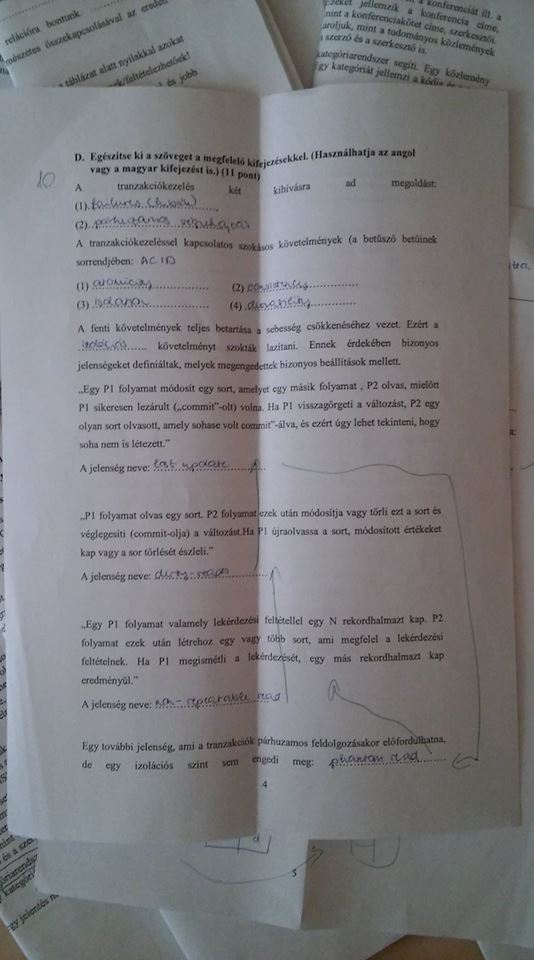 relációra bontunk.
mészetes összekapcsolásával az eredeti
táblázat alatt nyilakkal azokat
és jobb
konferenciát ill. a
jellemzik a konferencia címe,
mint a konferenciakötet címe, szerkesztői,
ároljuk, mint a tudományos közlemények
szerző és a szerkesztő is.
kategóriarendszer segíti. Egy közlemény
gy kategóriát jellemzi a kódja és
10
D. Egészítse ki a szöveget a megfelelő kifejezésekkel. (Használhatja az angol
vagy a magyar kifejezést is.) (11 pont)
A tranzakciókezelés két kihívásra ad megoldást:
(1) failures
(2) párhuzamos végrehajtás
A tranzakciókezeléssel kapcsolatos szokásos követelmények (a betűszó betűinek
sorrendjében: ACID
(1) atomicity (2) consistency
(3) isolation (4) durability
A fenti követelmények teljes betartása a sebesség csökkenéséhez vezet. Ezért a
izolációs követelményt szokták lazítani. Ennek érdekében bizonyos
jelenségeket definiáltak, melyek megengedettek bizonyos beállítások mellett.
„Egy P1 folyamat módosít egy sort, amelyet egy másik folyamat , P2 olvas, mielőtt
P1 sikeresen lezárult („commit”-olt) volna. Ha P1 visszagörgeti a változást, P2 egy
olyan sort olvasott, amely sohase volt commit”-álva, és ezért úgy lehet tekinteni, hogy
soha nem is létezett.”
A jelenség neve: lost update
„P1 folyamat olvas egy sort. P2 folyamat ezek után módosítja vagy törli ezt a sort és
véglegesíti (commit-olja) a változást.Ha P1 újraolvassa a sort, módosított értékeket
kap vagy a sor törlését észleli.”
A jelenség neve: dirty-reads
„Egy P1 folyamat valamely lekérdezési feltétellel egy N rekordhalmazt kap. P2
folyamat ezek után létrehoz egy vagy több sort, ami megfelel a lekérdezési
feltételnek. Ha P1 megismétli a lekérdezését, egy más rekordhalmazt kap
eredményül.”
A jelenség neve: non-repeatable read
Egy további jelenség, ami a tranzakciók párhuzamos feldolgozásakor előfordulhatna,
de egy izolációs szint sem engedi meg: phantom read
4
d
5